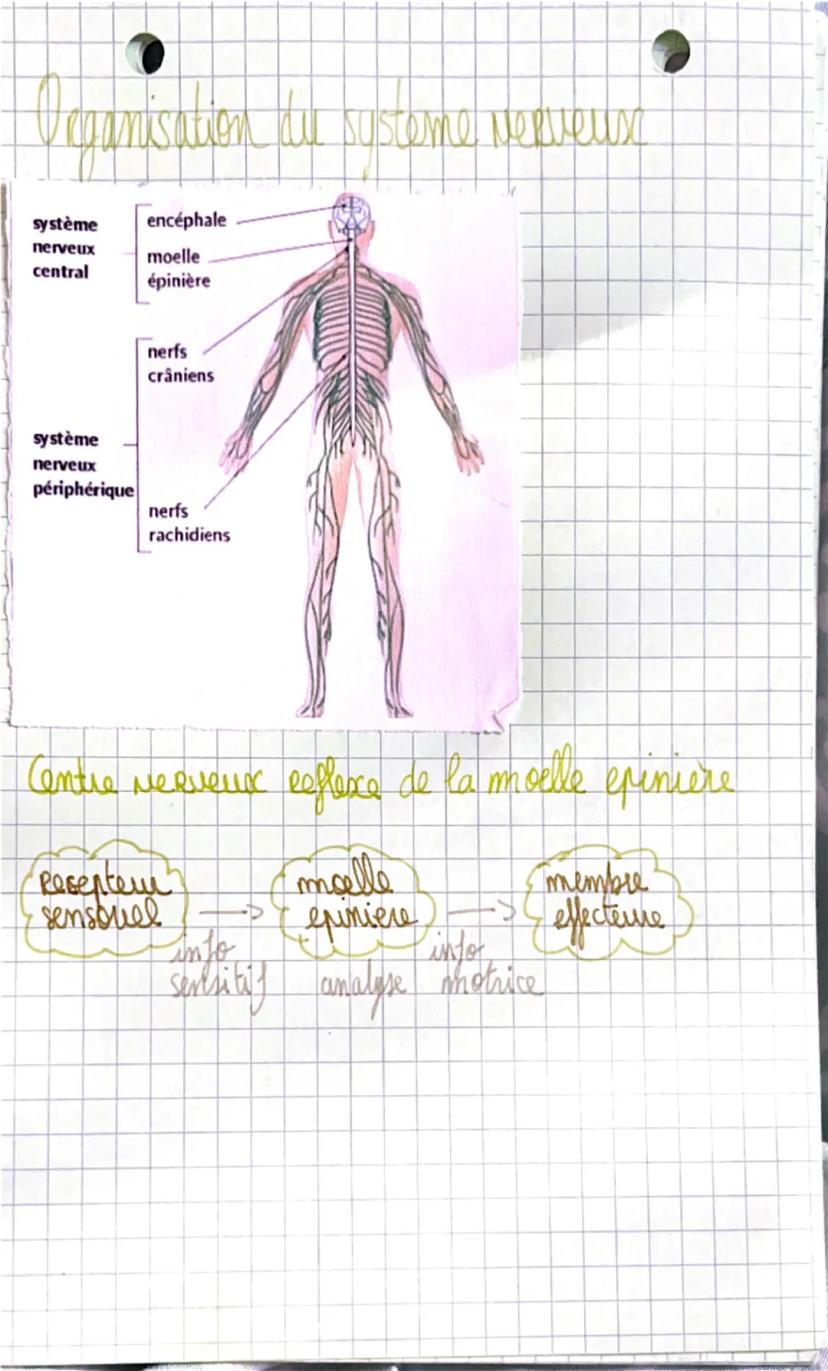 Organisation du systeme nerveux
système
nerveux
central
encéphale
moelle
épinière
nerfs
crâniens
système
nerveux
périphérique
nerfs
rachidiens
Centre nerveux reflexe de la moelle epinière
recepteur
sensoriel
moelle
epiniere
membre
effecteur
info
sensitif
analyse
info
motrice